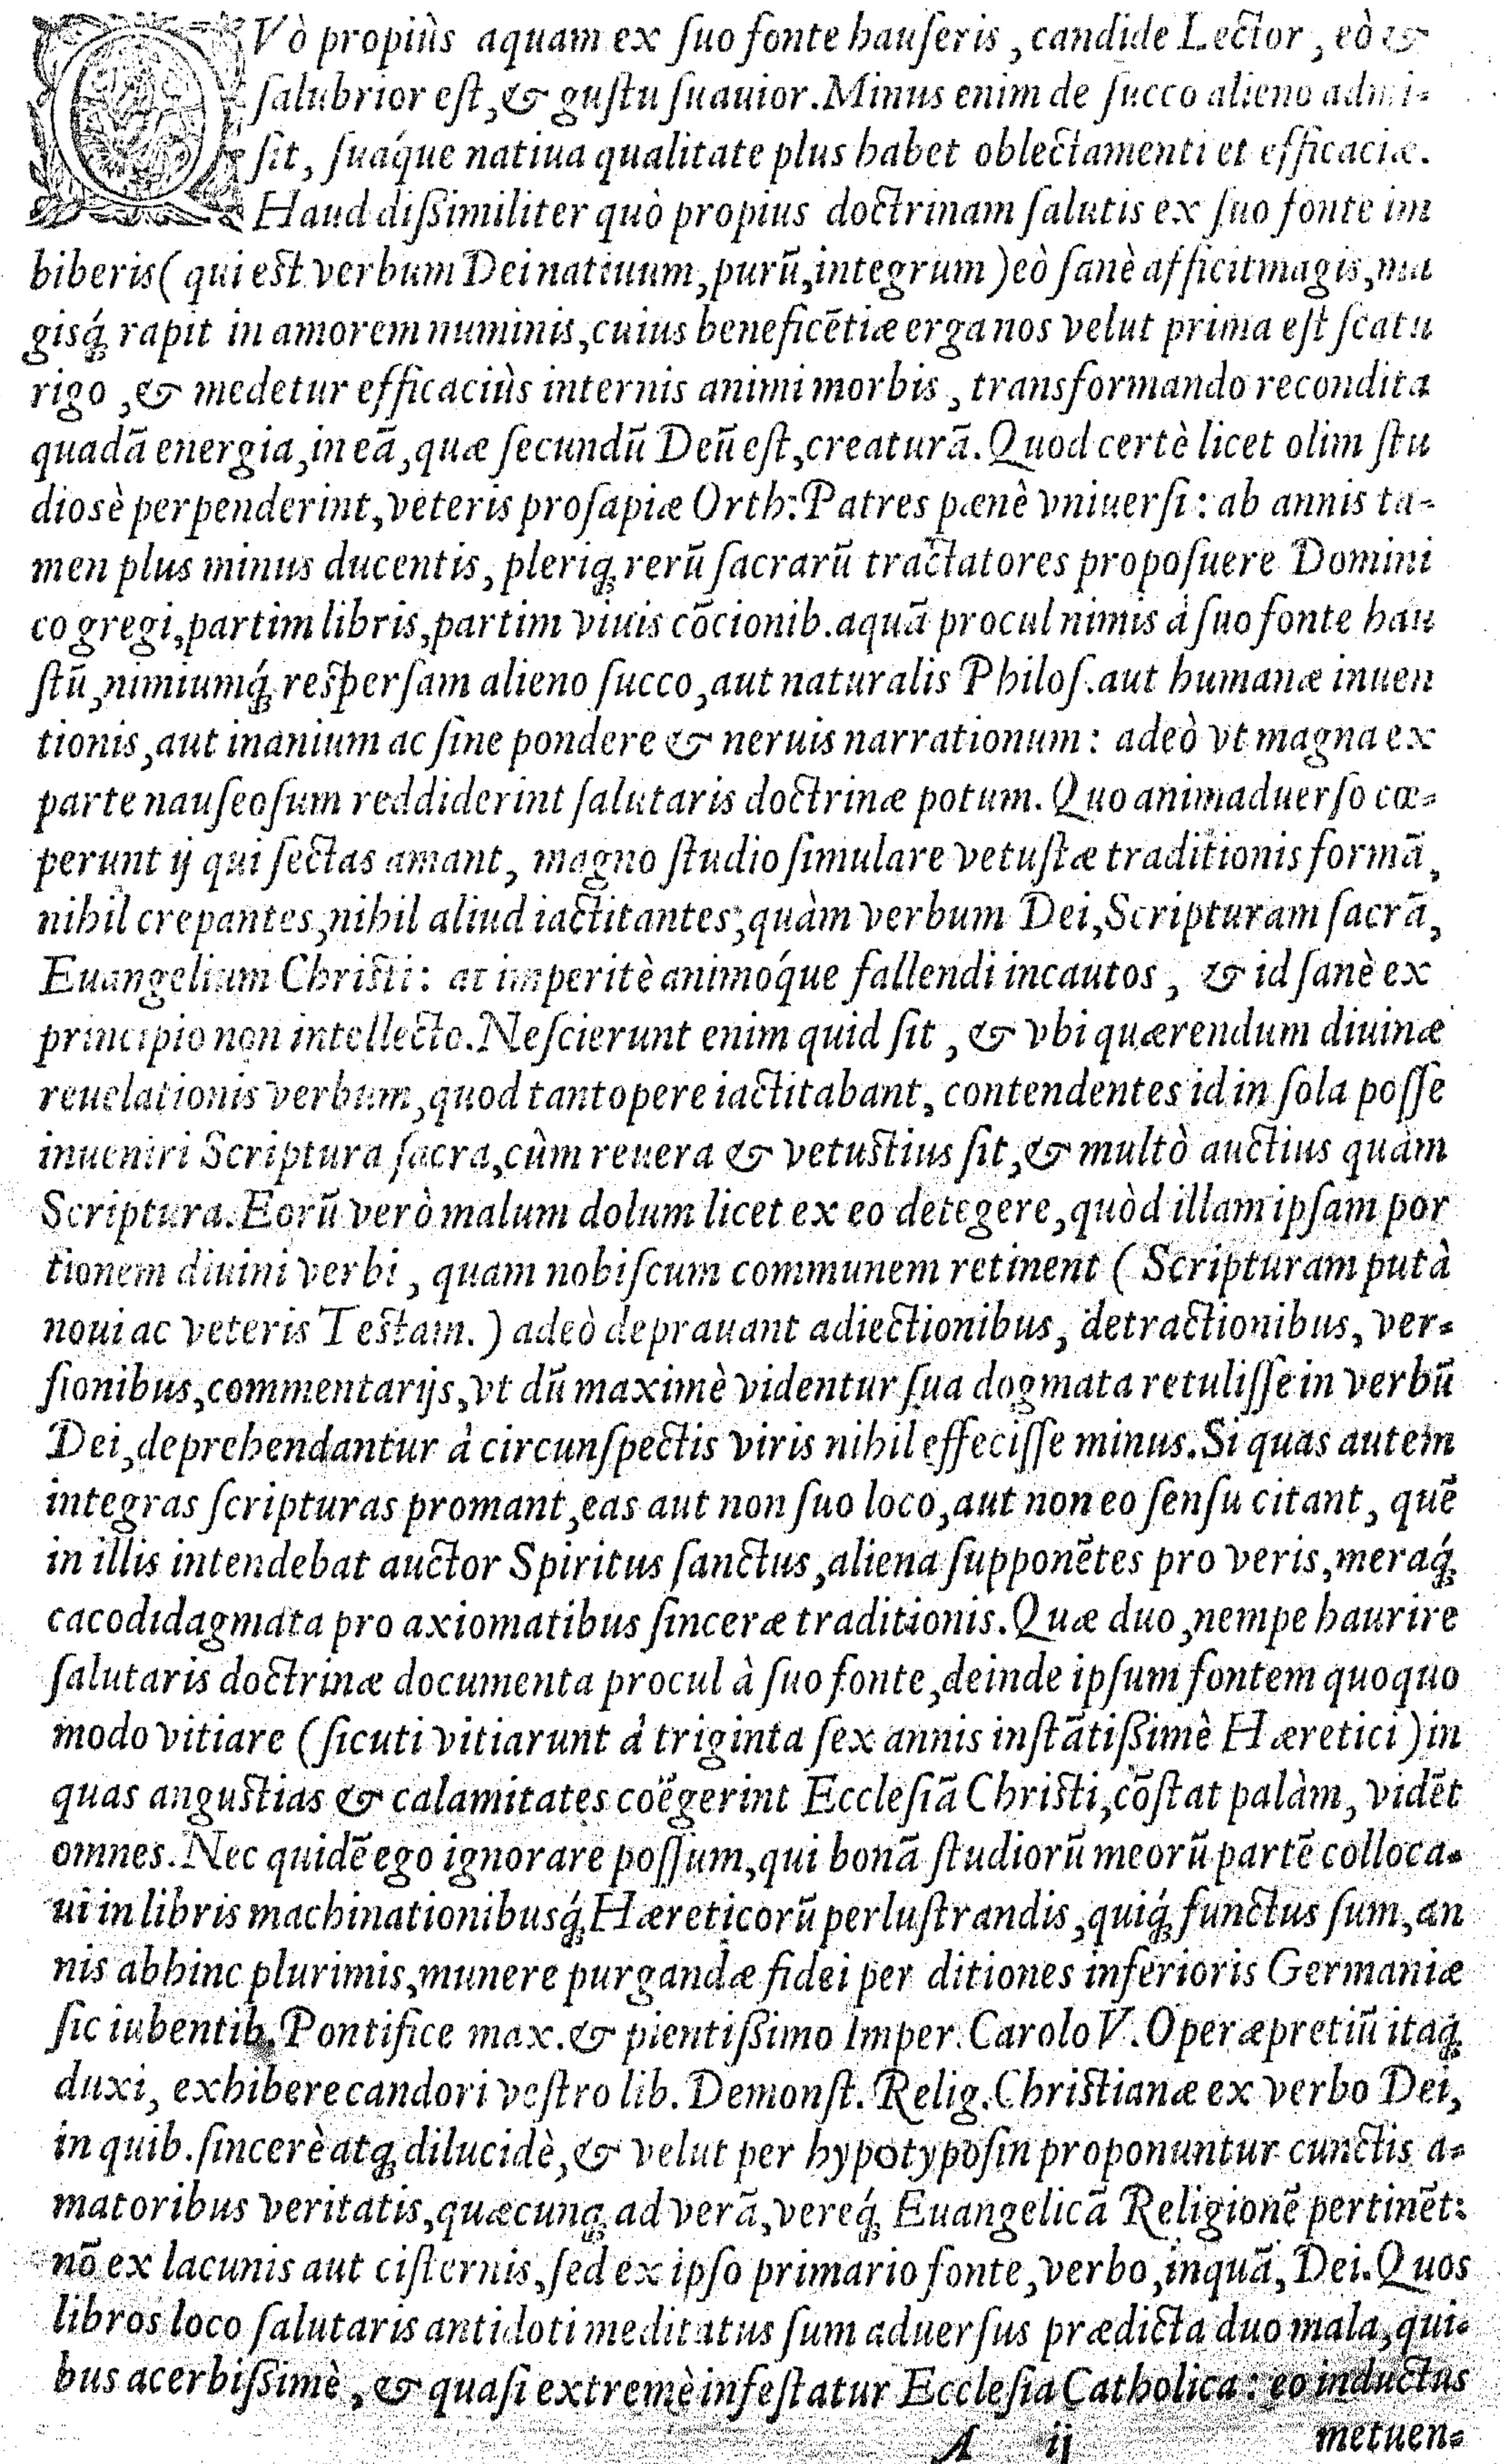 QVò propiùs aquam ex ſuo fonte hauſeris, candide Lector, eò &
ſalubrior eſt, & guſtu ſuauior. Minus enim de ſucco alieno admi-
ſit, ſuáque natiua qualitate plus habet oblectamenti et efficaciæ.
Haud diſsimiliter quò propius doctrinam ſalutis ex ſuo fonte im
biberis (qui est verbum Dei natiuum, purũ, integrum) eò ſanè afficit magis, ma
gisq́ꝫ rapit in amorem numinis, cuius beneficẽtiæ erga nos velut prima eſt ſcatu
rigo, & medetur efficaciùs internis animi morbis, transformando recondita
quadã energia, in eã, quæ ſecundũ Deũ eſt, creaturã. Quod certè licet olim ſtu
diosè perpenderint, veteris proſapiæ Orth: Patres pænè vniuerſi: ab annis ta-
men plus minus ducentis, pleriqꝫ rerũ ſacrarũ tractatores propoſuere Domini
co gregi, partim libris, partim viuis cõcionib. aquã procul nimis à ſuo fonte hau
ſtũ, nimiumq́ꝫ reſperſam alieno ſucco, aut naturalis Philoſ. aut humanæ inuen
tionis, aut inanium ac ſine pondere & neruis narrationum: adeò vt magna ex
parte nauſeoſum reddiderint ſalutaris doctrinæ potum. Quo animaduerſo cœ-
perunt ij qui ſectas amant, magno ſtudio ſimulare vetuſtæ traditionis formã,
nihil crepantes, nihil aliud iactitantes, quàm verbum Dei, Scripturam ſacrã,
Euangelium Christi: at imperitè animóque fallendi incautos, & id ſanè ex
principio non intellecto. Neſcierunt enim quid ſit, & vbi quærendum diuinæ
reuelationis verbum, quod tantopere iactitabant, contendentes id in ſola poſſe
inueniri Scriptura ſacra, cùm reuera & vetustius ſit, & multò auctius quàm
Scriptura. Eorũ verò malum dolum licet ex eo detegere, quòd illam ipſam por
tionem diuini verbi, quam nobiſcum communem retinent (Scripturam putà
noui ac veteris Testam.) adeò deprauant adiectionibus, detractionibus, ver-
ſionibus, commentarijs, vt dũ maximè videntur ſua dogmata retuliſſe in verbũ
Dei, deprehendantur à circunſpectis viris nihil effeciſſe minus. Si quas autem
integras ſcripturas promant, eas aut non ſuo loco, aut non eo ſenſu citant, quẽ
in illis intendebat auctor Spiritus ſanctus, aliena ſupponẽtes pro veris, meraq́ꝫ
cacodidagmata pro axiomatibus ſinceræ traditionis. Quæ duo, nempe haurire
ſalutaris doctrinæ documenta procul à ſuo fonte, deinde ipſum fontem quoquo
modo vitiare (ſicuti vitiarunt à triginta ſex annis inſtãtiſsimè Hæretici) in
quas angustias & calamitates coëgerint Eccleſiã Christi, cõſtat palàm, vidẽt
omnes. Nec quidẽ ego ignorare poſſum, qui bonã ſtudiorũ meorũ partẽ colloca-
ui in libris machinationibusq́ꝫ Hæreticorũ perluſtrandis, quiq́ꝫ functus ſum, an
nis abhinc plurimis, munere purgandæ fidei per ditiones inferioris Germaniæ
ſic iubentib. Pontifice max. & pientiſsimo Imper. Carolo V. Operæpretiũ itaqꝫ
duxi, exhibere candori veſtro lib. Demonſt. Relig. Christianæ ex verbo Dei,
in quib. ſincerè atqꝫ dilucidè, & velut per hypotypoſin proponuntur cunctis a-
matoribus veritatis, quæcunqꝫ ad verã, vereq́ꝫ Euangelicã Religionẽ pertinẽt:
nõ ex lacunis aut ciſternis, ſed ex ipſo primario fonte, verbo, inquã, Dei. Quos
libros loco ſalutaris antidoti meditatus ſum aduerſus prædicta duo mala, qui-
bus acerbiſsimè, & quaſi extremè infeſtatur Eccleſia Catholica: eo inductus
A ij metuen-